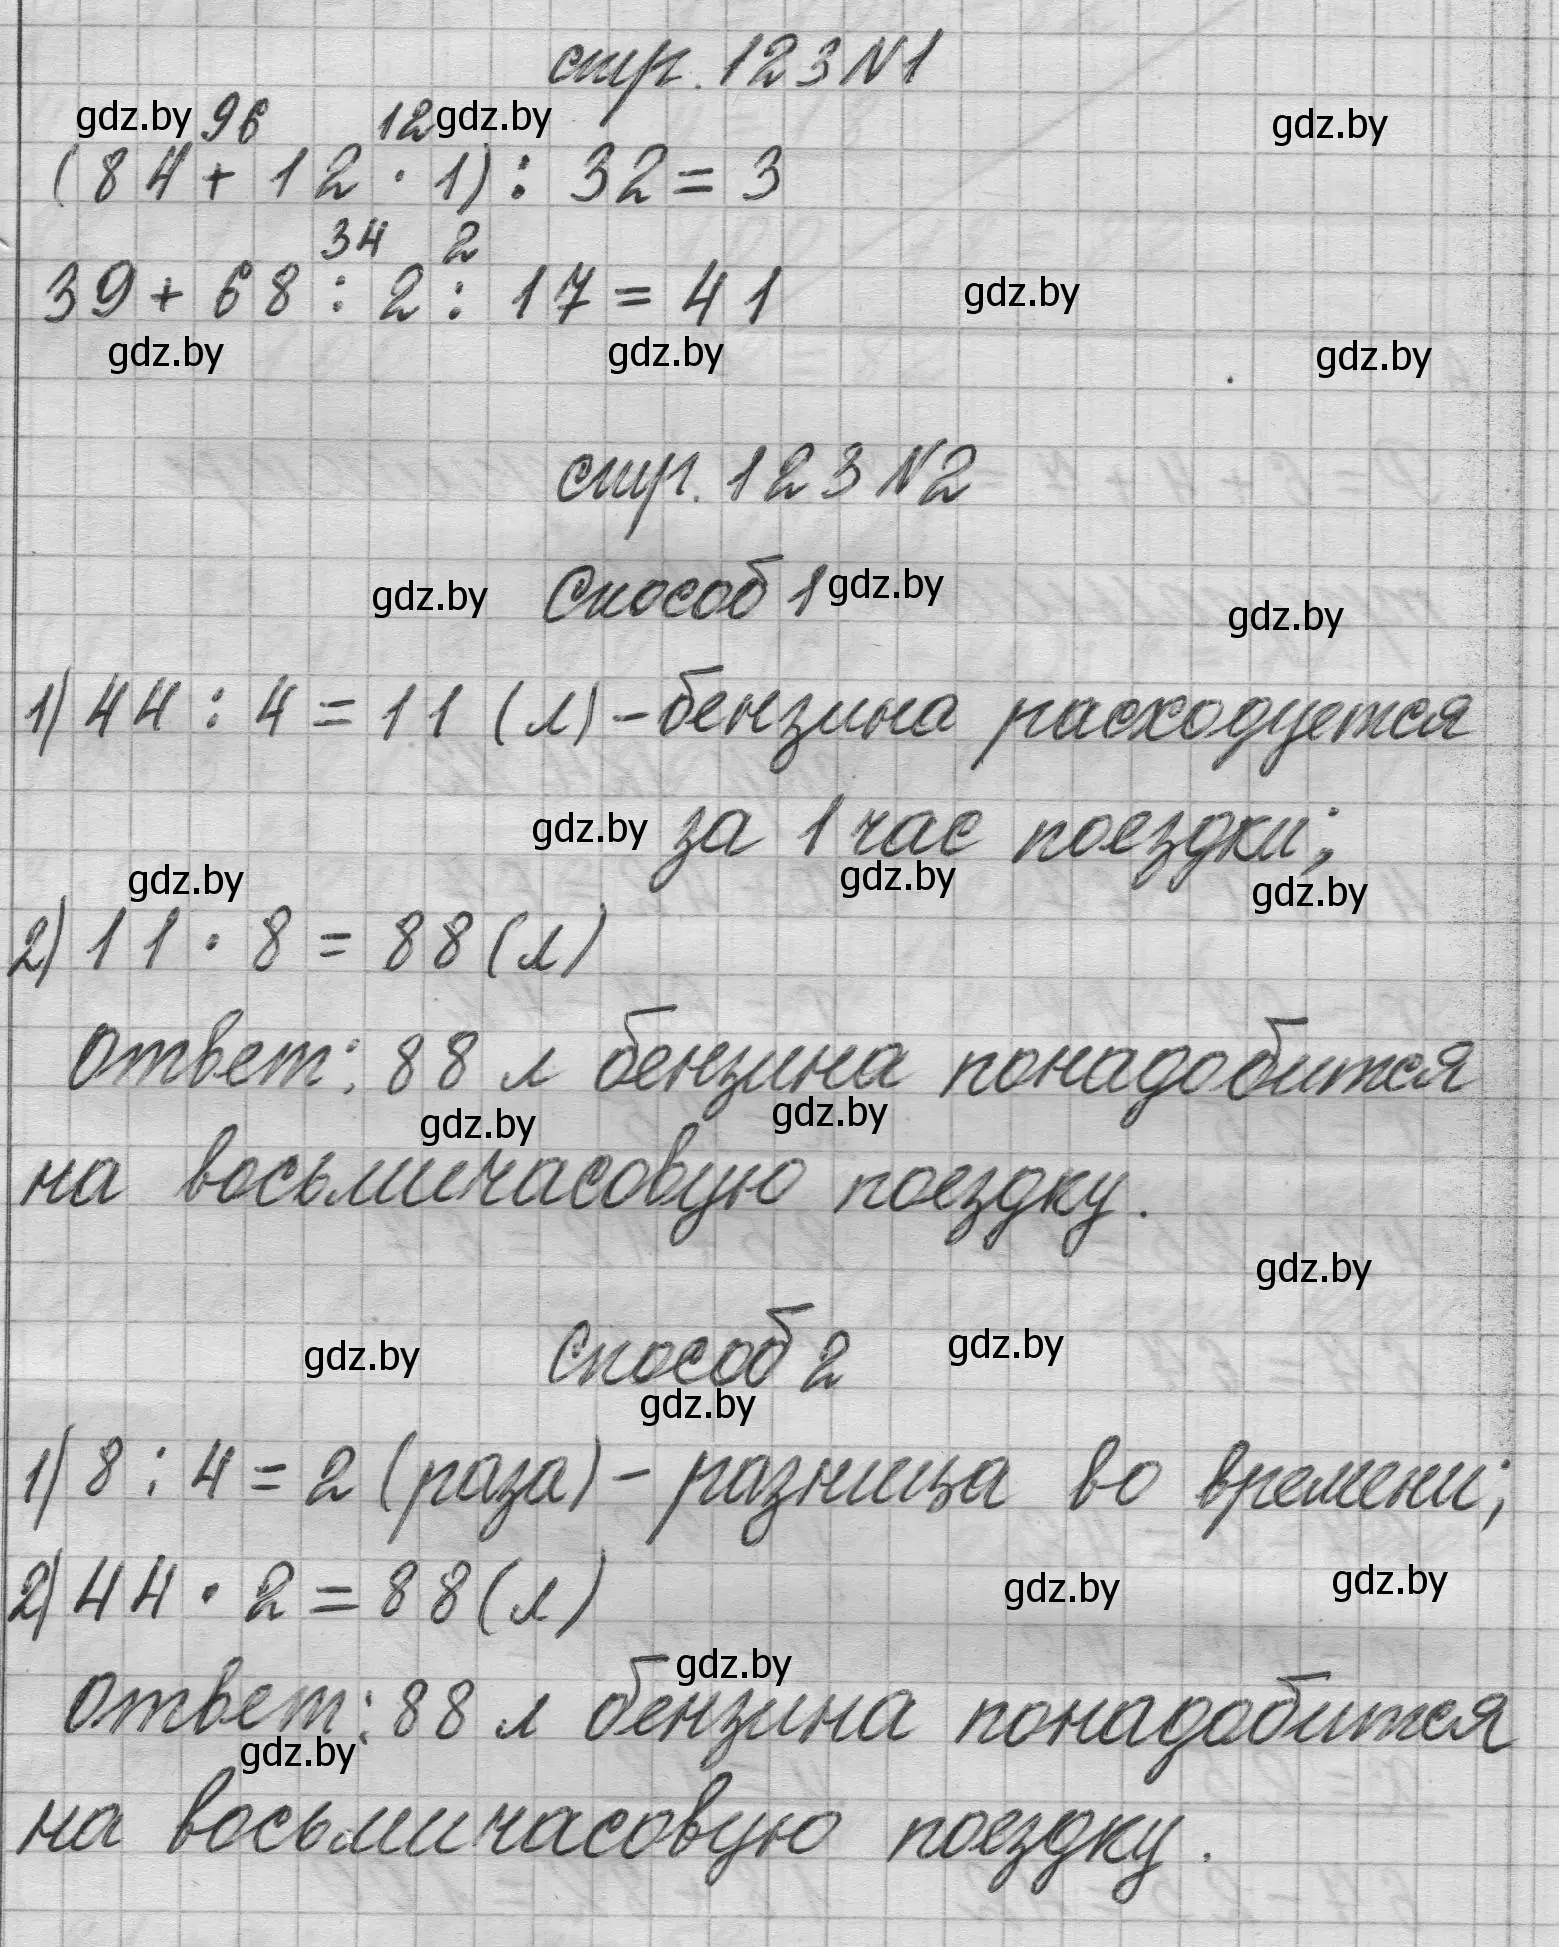 стр. 123 №1
gdz.by 96 12 gdz.by gdz.by
(84 + 12 · 1) : 32 = 3
34 2
39 + 68 : 2 : 17 = 41 gdz.by
gdz.by gdz.by gdz.by
стр. 123 №2
gdz.by Способ 1 gdz.by gdz.by
1) 44 : 4 = 11 (л) – бензина расходуется
gdz.by за 1 час поездки;
gdz.by gdz.by gdz.by
2) 11 · 8 = 88 (л)
Ответ: 88 л бензина понадобится
gdz.by gdz.by
на восьмичасовую поездку.
gdz.by
gdz.by Способ 2 gdz.by
gdz.by
1) 8 : 4 = 2 (раза) – разница во времени;
2) 44 · 2 = 88 (л) gdz.by gdz.by
gdz.by
Ответ: 88 л бензина понадобится
gdz.by
на восьмичасовую поездку.